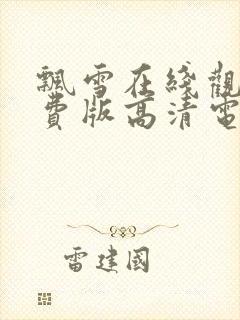 飄雪在綫觀
費版高清電
雷建國